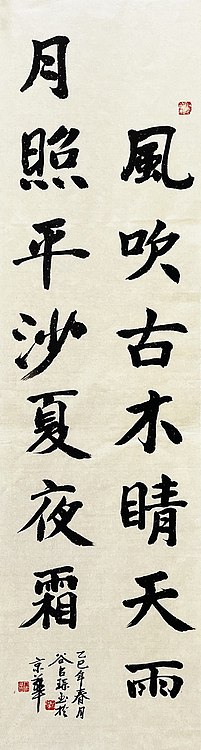 風吹古木晴天雨
月照平沙夏夜霜
乙巳年春月
谷占琢書於
京華